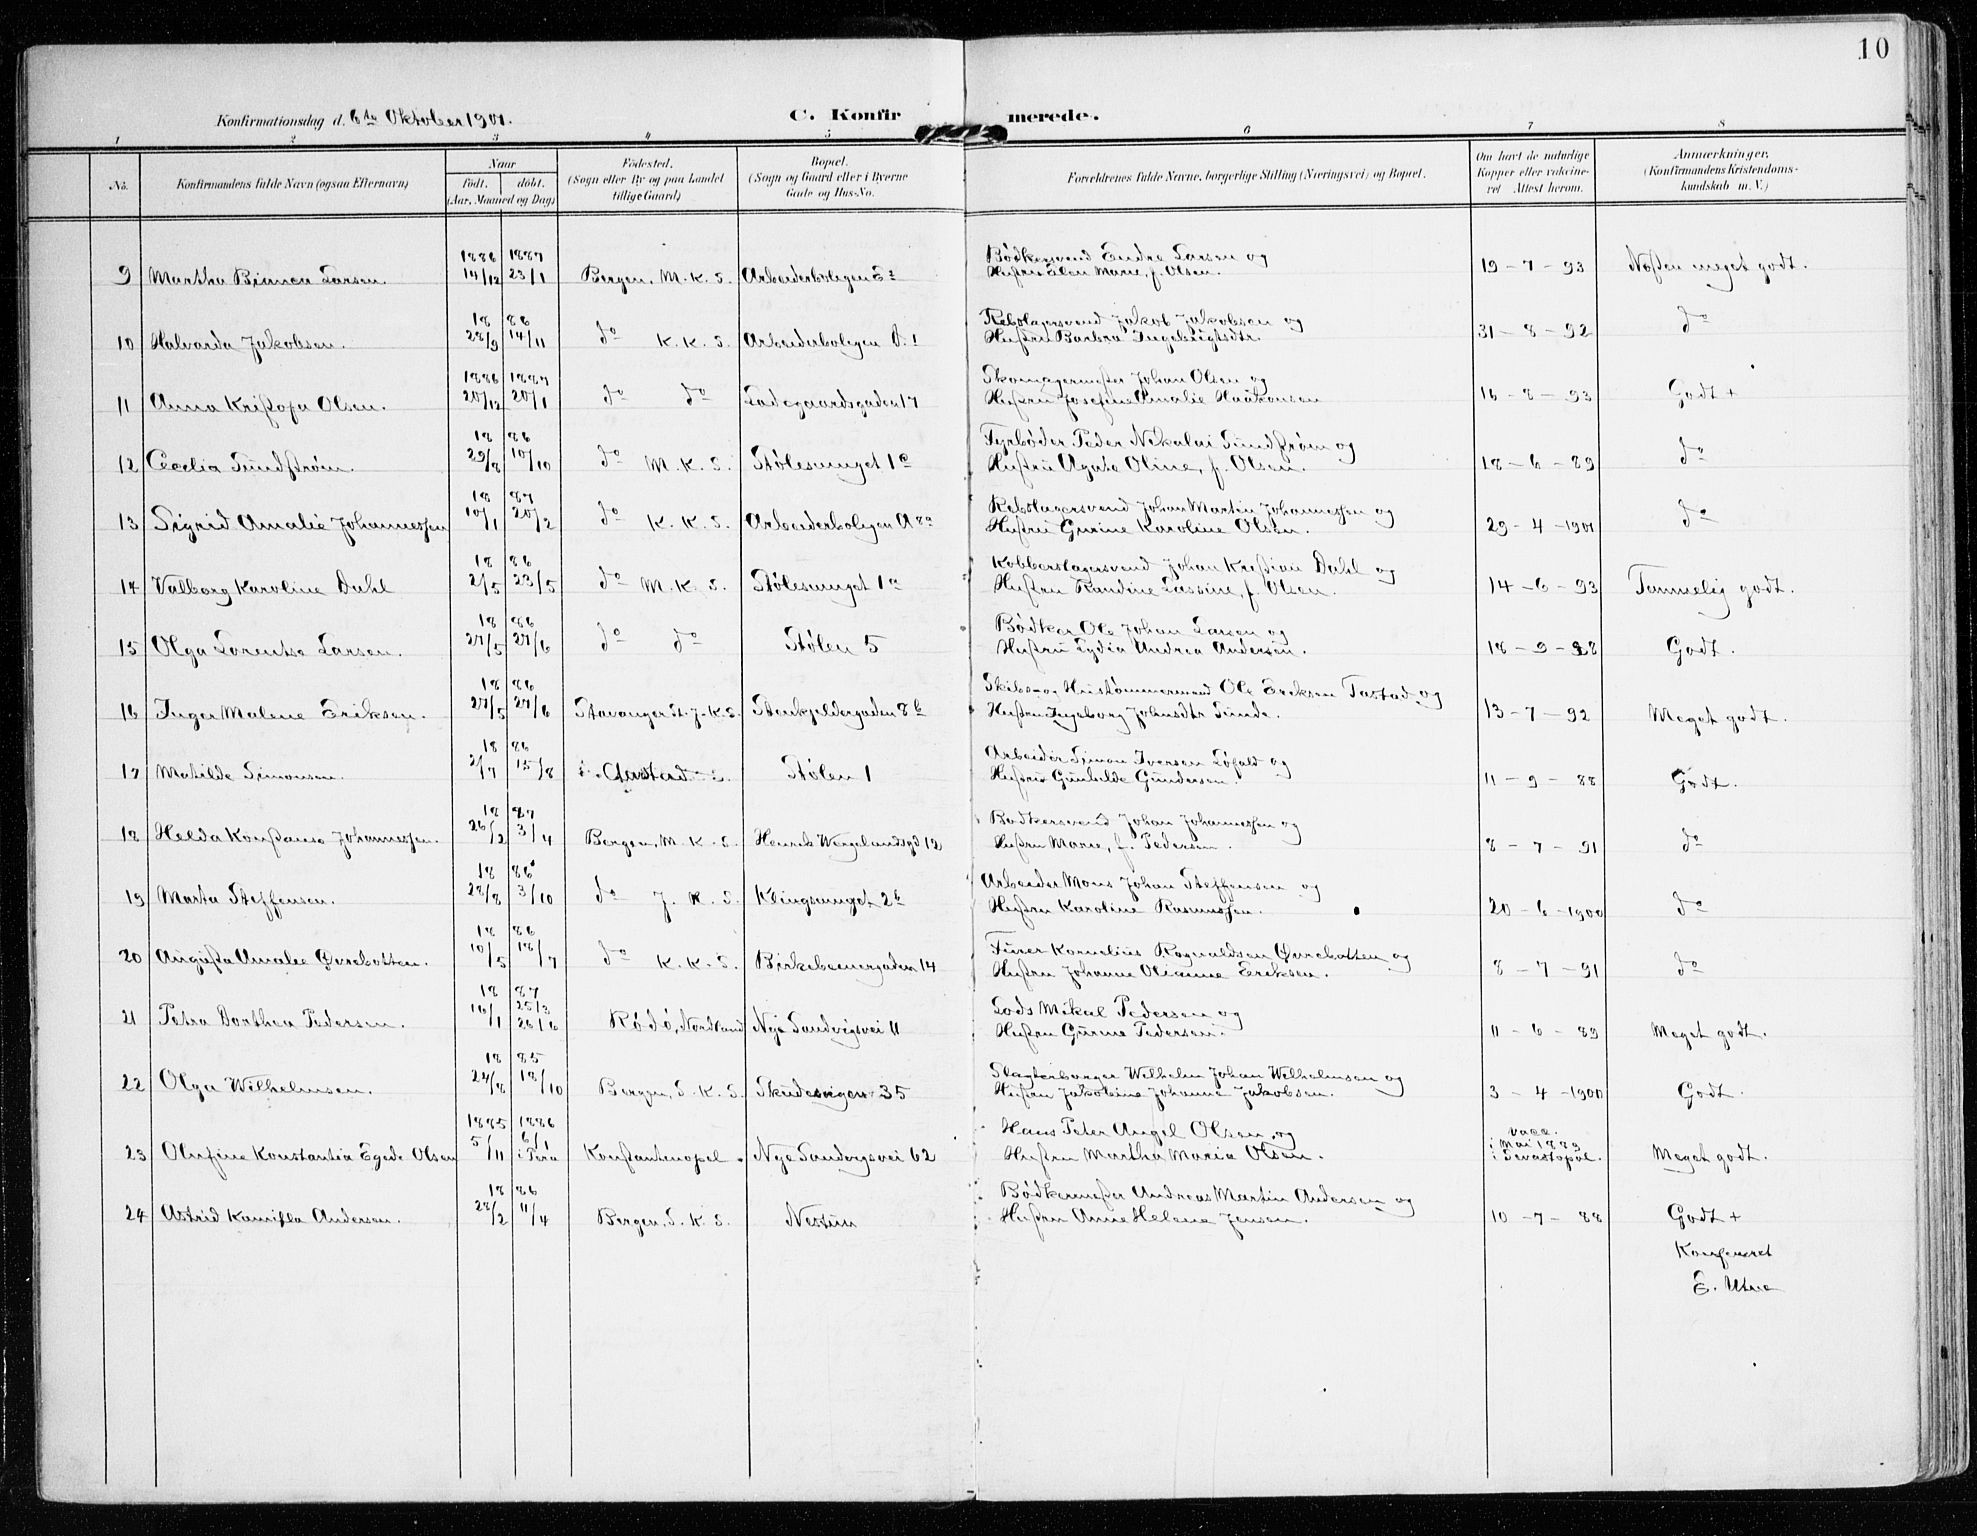 10
Konfirmationsdag d. 6te Oktober 1901.
C. Konfirmerede.
1 2 3 4 5 6 7 8
No.
Konfirmandens fulde Navn (ogsaa Efternavn)
Naar
födt. döbt.
(Aar, Maaned og Dag)
Födested.
(Sogn eller By og paa Landet
tillige Gaard)
Bopæl.
(Sogn og Gaard eller i Byerne
Gade og Hus-No.
Forældrenes fulde Navne, borgerlige Stilling (Næringsvei) og Bopæl.
Om havt de naturlige
Kopper eller vakcine-
ret Attest herom.
Anmærkninger.
(Konfirmandens Kristendoms-
kundskab m. V.)
1886 1887 Bødkersvend Endre Larsen og
9 Martha Bianca Larsen. 14/12 23/1 Bergen, M. K. S. Arbeiderboligen Hustru Elen Marie, f. Olsen. 19-7-93 Næsten meget godt.
18 86 Rebslagersvend Jakob Jakobsen og
10 Halvarda Jakobsen. 28/9 14/11 do K. K. S. Arbeiderboligen Hustru Barbra Ingebrigtsdtr. 31-8-92 do
1886 1887 Skomagermester Johan Olsen og
11 Anna Kristofa Olsen. 20/12 20/1 do do Ladegaardsgaden 17 Hustru Josefine Amalie Haakonsen 16-8-93 Godt +
18 86 Fyrbøder Peder Nikolai Sundstrøm og
12 Cecelia Sundstrøm. 29/8 10/10 do M. K. S. Stølesmuget 1a Hustru Agate Oline, f. Olsen. 18-6-89 do
18 87 Rebslagersvend Johan Martin Johannessen og
13 Sigrid Amalie Johannessen 10/1 20/2 do K. K. S. Arbeiderboligen A Hustru Gurine Karoline Olsen. 29-4-1901 do
18 86 Kobberslagersvend Johan Kristian Dahl og
14 Valborg Karoline Dahl 2/5 23/5 do M. K. S. Stølesmuget 1a Hustru Randine Lassine, f. Olsen. 14-6-93 Temmelig godt.
18 86 Bødker Ole Johan Larsen og
15 Olga Lorentse Larsen. 27/5 27/6 do do Stølen 5 Hustru Lydia Andrea Andersen. 18-9-88 Godt.
18 86 Skibs- og Hustømmermand Ole Eriksen Tastad og
16 Inger Malene Eriksen. 27/5 27/6 Stavanger St. J. K. S. Stenkjeldergaden 8b Hustru Ingeborg Johnsdtr Sunde. 13-7-92 Meget godt.
18 86 Arbeider Simon Iversen Løfald og
17 Matilde Simonsen. 2/7 15/8 Stølen 1 Hustru Gunhilde Gundersen. 11-9-88 Godt.
18 87 Bødkersvend Johan Johannessen og
18 Helda Konstanse Johannessen. 26/2 3/4 Bergen, M. K. S. Henrik Wergelandsgd 12 Hustru Marie, f. Pedersen. 8-7-91 do
18 86 Arbeider Mons Johan Steffensen og
19 Marta Steffensen. 28/8 3/10 do J. K. S. Klingsmuget 2b Hustru Karoline Rasmussen. 20-6-1900 do
18 86 Kornelius Ragnvaldsen Øvrebotten og
20 Augusta Amalie Øvrebotten. 10/5 18/7 do K. K. S. Birkebeinergaden 14 Hustru Johanne Olianne Eriksen. 8-7-91 do
18 87 Lods Mikal Pedersen og
21 Petra Dorthea Pedersen. 16/1 25/3 26/6 Rödö, Nordland Nye Sandvigsvei 11 Hustru Gurine Pedersen. 11-6-89 Meget godt.
18 85 Slagterborger Wilhelm Johan Wilhelmsen og
22 Olga Wilhelmsen. 24/8 18/10 Bergen, S. K. S. Skudevigen 35 Hustru Jakobine Johanne Jakobsen. 3-4-1900 Godt.
1885 1886 Hans Peter Angel Olsen og vacc. i Mai 1889
23 Olufine Konstantia Egede Olsen 5/11 6/1 i Pera Konstantenopel. Nye Sandvigsvei 62 Hustru Martha Maria Olsen. i Sevastopol. Meget godt.
18 86 Bødkermester Andreas Martin Andersen og
24 Astrid Kamilla Andersen. 28/2 11/4 Bergen, S. K. S. Nestun Hustru Anne Helene Jensen. 10-7-88 Godt +
Konfereret
E. Utne